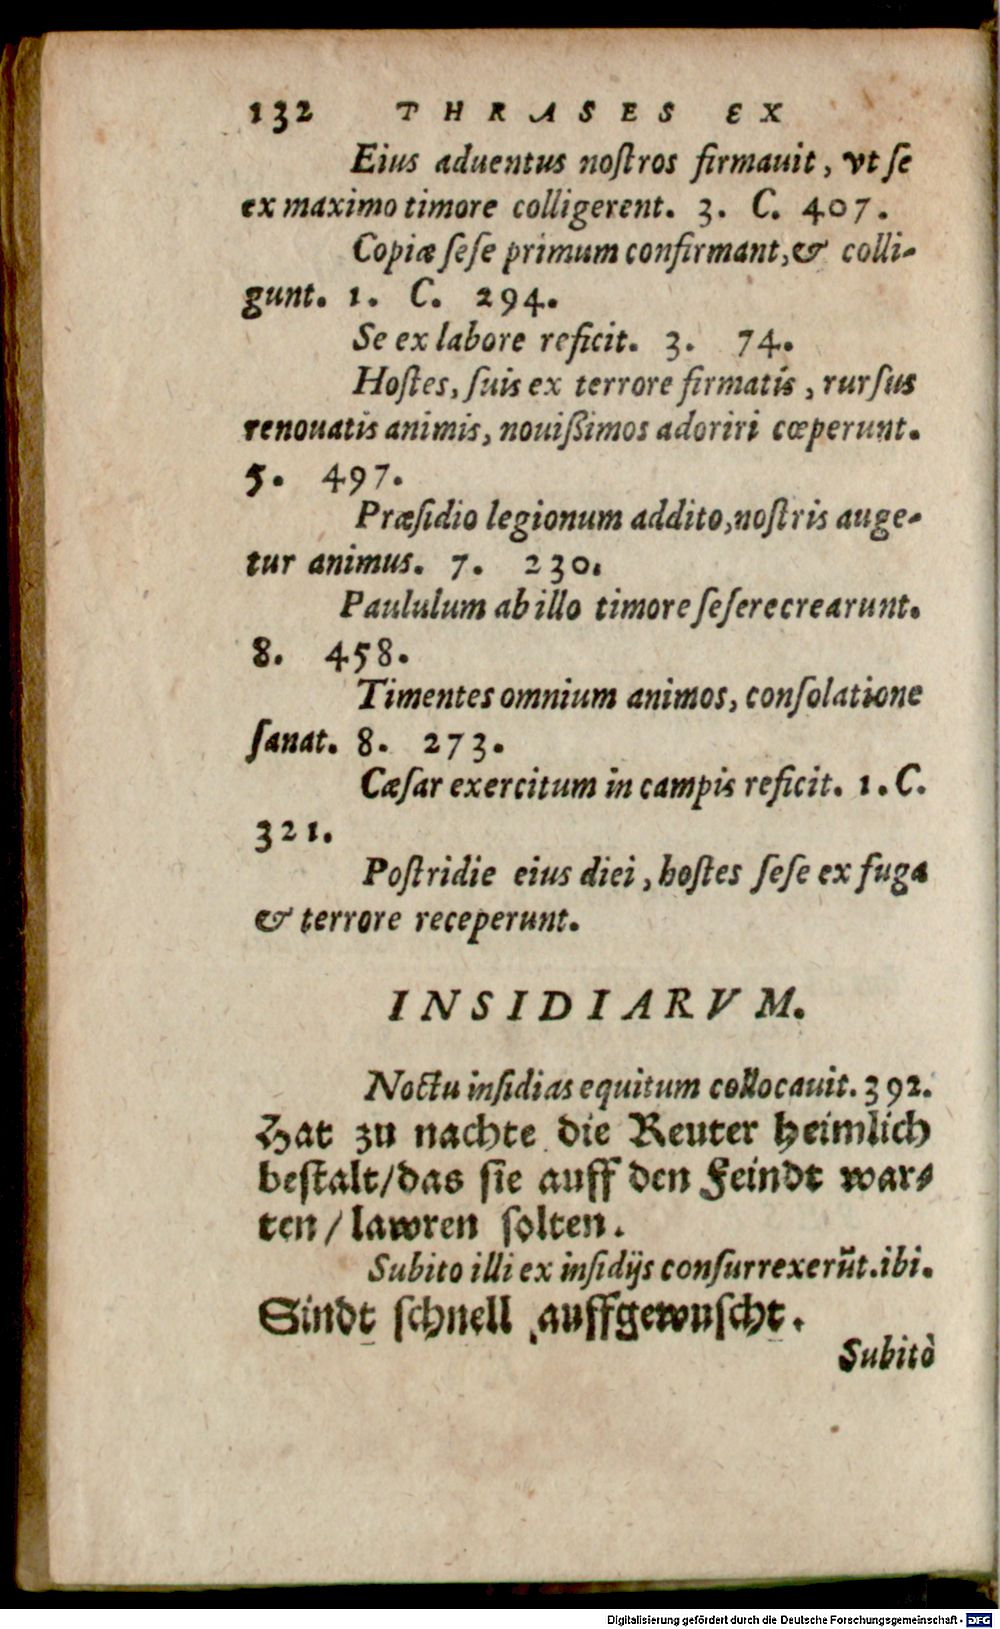 132 THRASES EX
Eius aduentus nostros firmauit, vt se
ex maximo timore colligerent. 3. C. 407.
Copiæ sese primum confirmant, & colli-
gunt. 1. C. 294.
Se ex labore reficit. 3. 74.
Hostes, suis ex terrore firmatis, rursus
renouatis animis, nouißimos adoriri cœperunt.
5. 497.
Præsidio legionum addito, nostris auge-
tur animus. 7. 230.
Paululum ab illo timore sese recrearunt.
8. 458.
Timentes omnium animos, consolatione
sanat. 8. 273.
Cæsar exercitum in campis reficit. 1. C.
321.
Postridie eius diei, hostes sese ex fuga
& terrore receperunt.
INSIDIARVM.
Noctu insidias equitum collocauit. 392.
Hat zu nachte die Reuter heimlich
bestalt/das sie auff den Feindt war-
ten/lawren solten.
Subito illi ex insidijs consurrexerũt. ibi.
Sindt schnell auffgewuscht.
Subitò
Digitalisierung gefördert durch die Deutsche Forschungsgemeinschaft - DFG